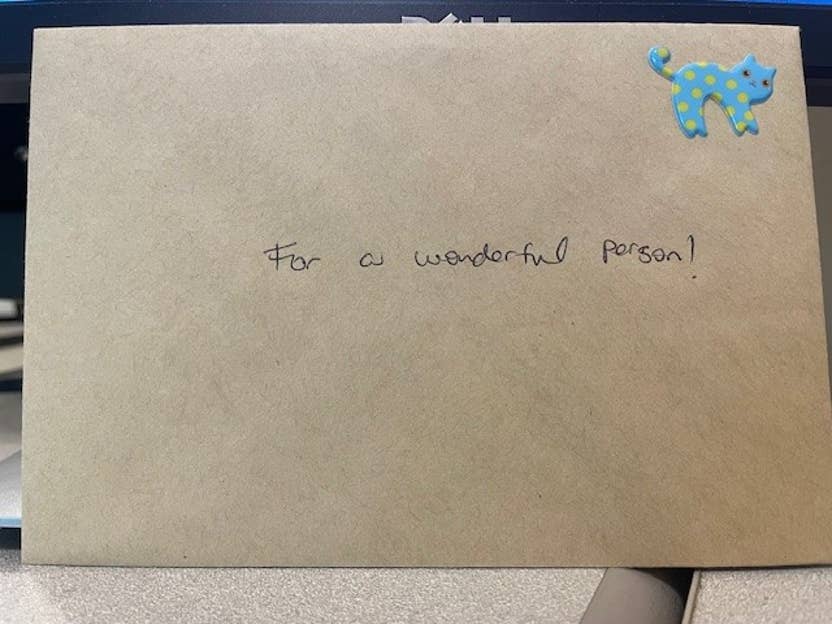 DELL
For a wonderful person!